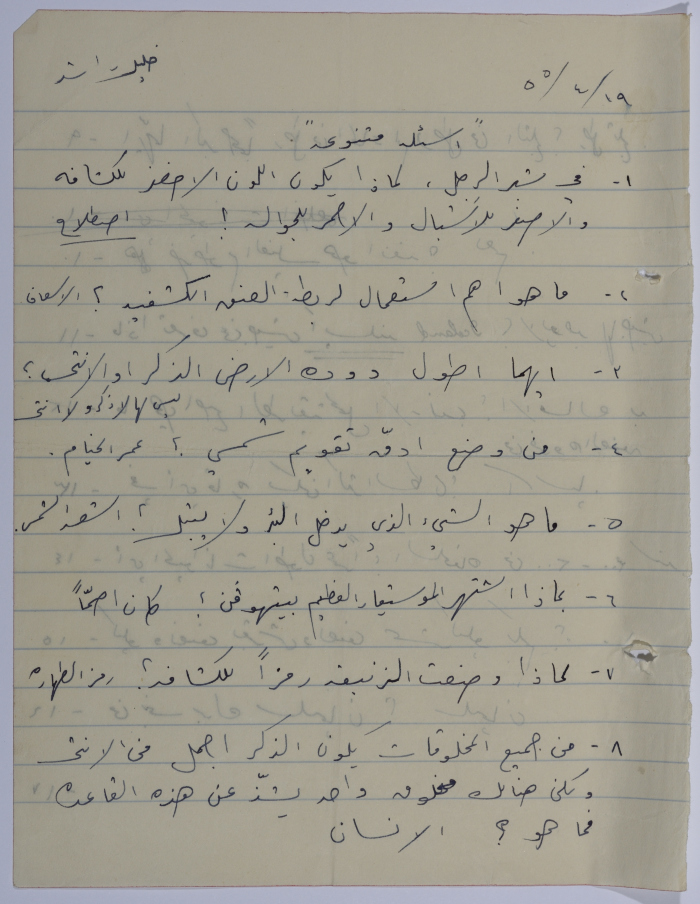 خليل راشد
١٩/٤/٥٥
"اسئلة متنوعة"
١- في شعر الرجل، لماذا يكون اللون الاخضر للكشافه
والاصفر للاشبال والاحمر للجواله؟ اصطلاح
٢- ما هو اهم استعمال لربطة العنق الكشفيه؟ الاسعاف
٣- ايهما اطول دودة الارض الذكر او الانثى؟
ليس لها لا ذكر ولا انثى
٤- من وضع ادقّ تقويم شمسي؟ عمر الخيام.
٥- ما هو الشيء الذي يدخل البئر ولا يبتل؟ اشعة الشمس
٦- بماذا اشتهر الموسيقار العظيم بيتهوفن؟ كان اصمّاً
٧- لماذا وضعت الزنبقه رمزاً للكشافه؟ رمز الطهاره
٨- من جميع المخلوقات يكون الذكر اجمل من الانثى
ولكن هنالك مخلوق واحد يشذّ عن هذه القاعده
فما هو؟ الانسان